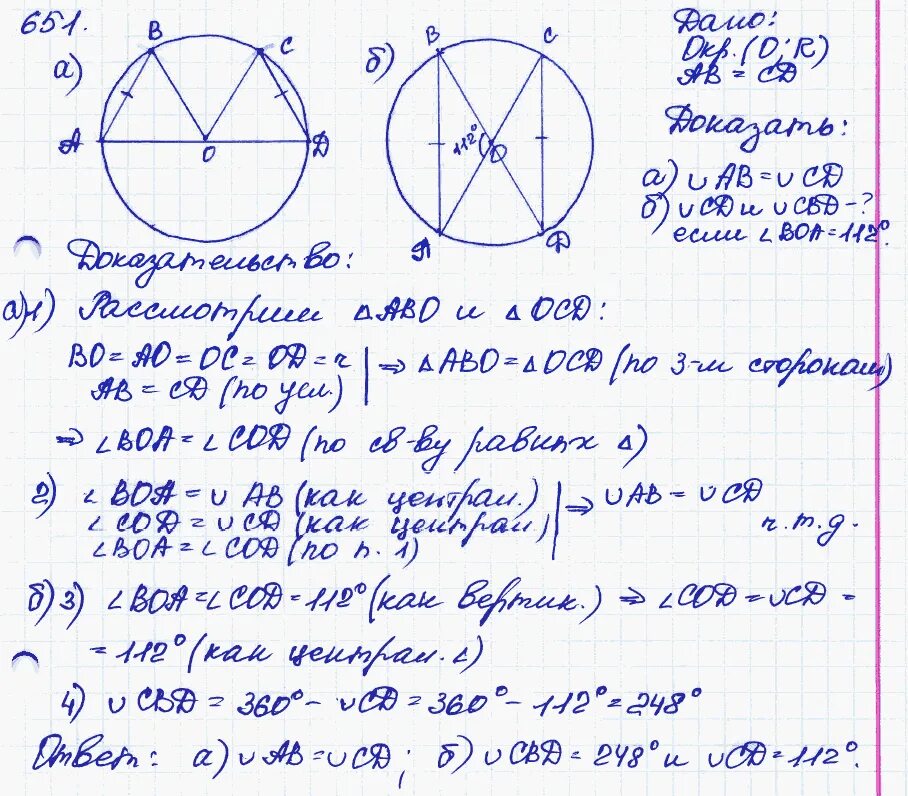 651.
а)
B
C
A
O
D
б)
B
C
112°
O
A
D
Дано:
Окр.(O; R)
AB = CD
Доказать:
а) ∪ AB = ∪ CD
б) ∪ CD и ∪ CBD - ?
если ∠BOA = 112°.
Доказательство:
а) 1) Рассмотрим △ABO и △OCD:
BO = AO = OC = OD = r
AB = CD (по усл.)
⇒ △ABO = △OCD (по 3-м сторонам)
⇒ ∠BOA = ∠COD (по св-ву равных △)
2) ∠BOA = ∪ AB (как централ.)
∠COD = ∪CD (как централ.)
∠BOA = ∠COD (по п. 1)
⇒ ∪AB = ∪CD
ч.т.д.
б) 3) ∠BOA = ∠COD = 112° (как вертик.) ⇒ ∠COD = ∪CD =
= 112° (как централ. ∠)
4) ∪ CBD = 360° - ∪CD = 360° - 112° = 248°
Ответ: а) ∪ AB = ∪ CD; б) ∪ CBD = 248° и ∪CD = 112°.